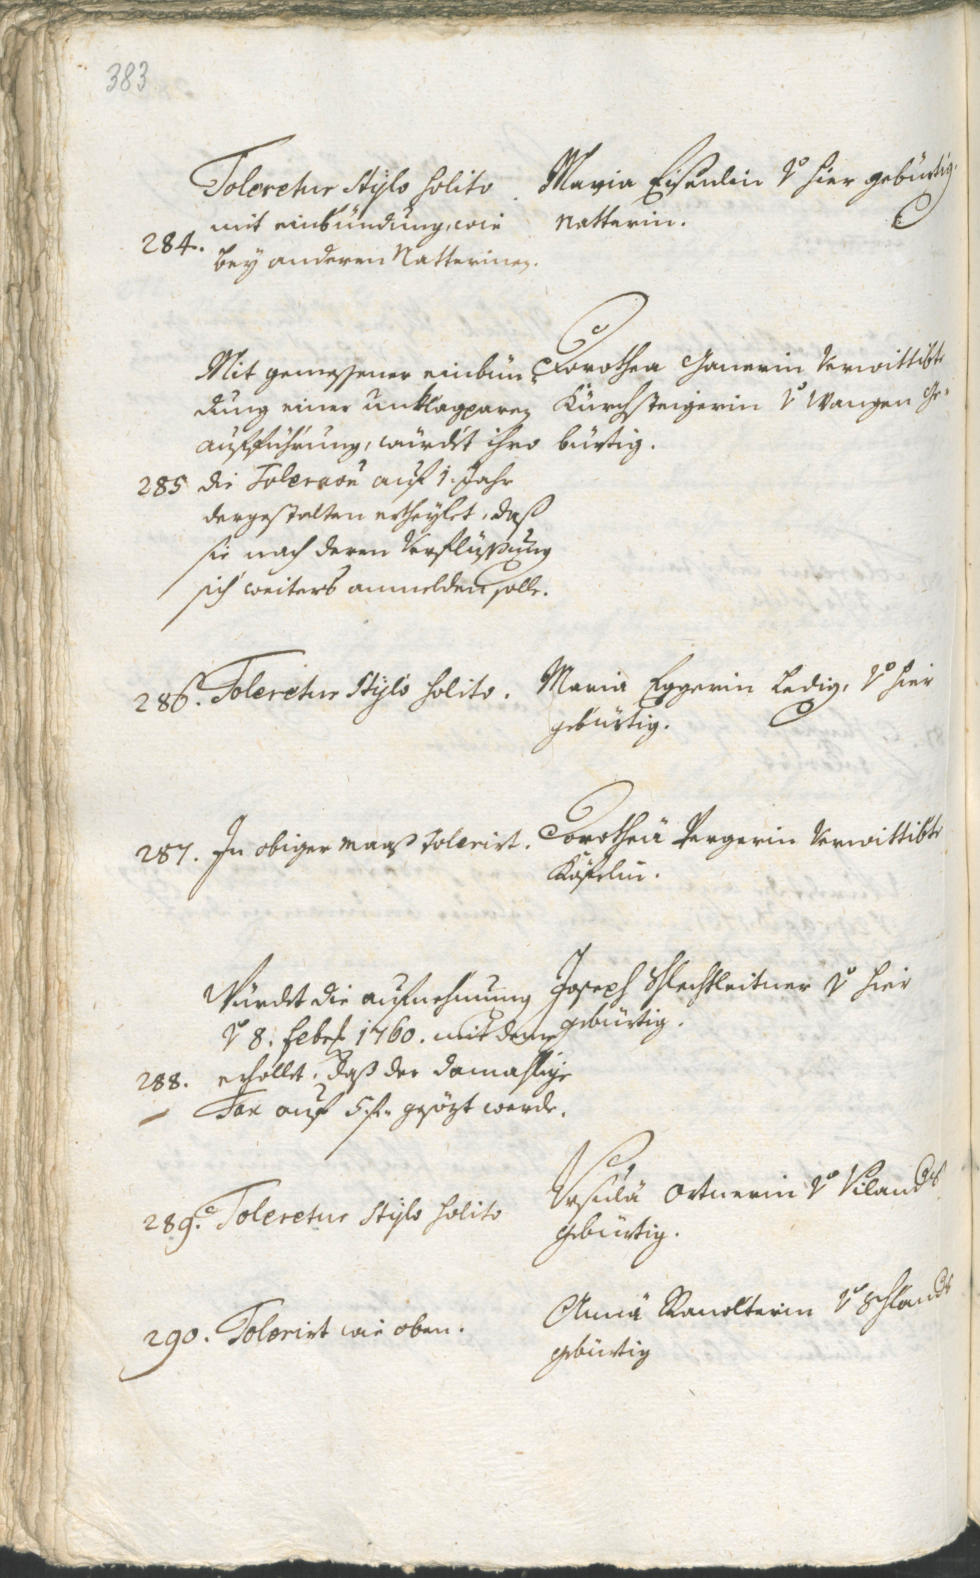 383
Toleretur Stylo solito
mit einbündung, wie
284.
bey anderen Natterinen.
Maria Eisenlin v hier gebürtig.
Natterin.
Mit gemessener einbün
dung einer unklagparen
aufführung, würdt ihro
285 die Toleraõn auf 1. Jahr
dergestalten ertheylet, daß
sie nach deren Verflüssung
sich weiters anmelden solle.
Dorothea Verwittibte
Kürchsteigerin v Wangen ge¬
bürtig.
286. Toleretur Stylo solito.
Maria Eggerin Ledig, v hier
gebürtig.
287. In obiger maaß tolerirt.
Dorothea Pergerin Verwittibte
Käserlin.
Würdt die aufnehmung
v 8. feber 1760. mit deme
288. erhollet, daß der damahlige
Tax auf 5 f. gesözt werde.
Joseph Schlechtleitner v hier
gebürtig.
289. Toleretur Stylo solito
Ursula Ortnerin v Vilanders
gebürtig.
290. Tolerirt wie oben.
Anna v Schlanders
gebürtig